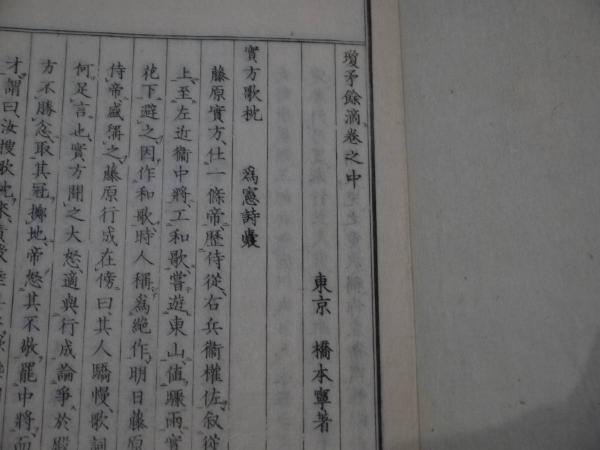 瓊矛餘滴卷之中
東京 橋本寧著
實方歌枕 爲憲詩囊
藤原實方、仕一條帝、歷侍從右兵衞權佐、敘從
上、至左近衞中將、工和歌、嘗遊東山、値驟雨、實
花下避之、因作和歌、時人稱爲絶作、明日藤原
侍帝盛稱之、藤原行成在傍曰、其人驕慢、歌詞
何足言也、實方聞之大怒、適與行成論爭於殿
方不勝忿、取其冠擲地、帝怒其不敬、罷中將、而
才、謂曰、汝搜歌枕來